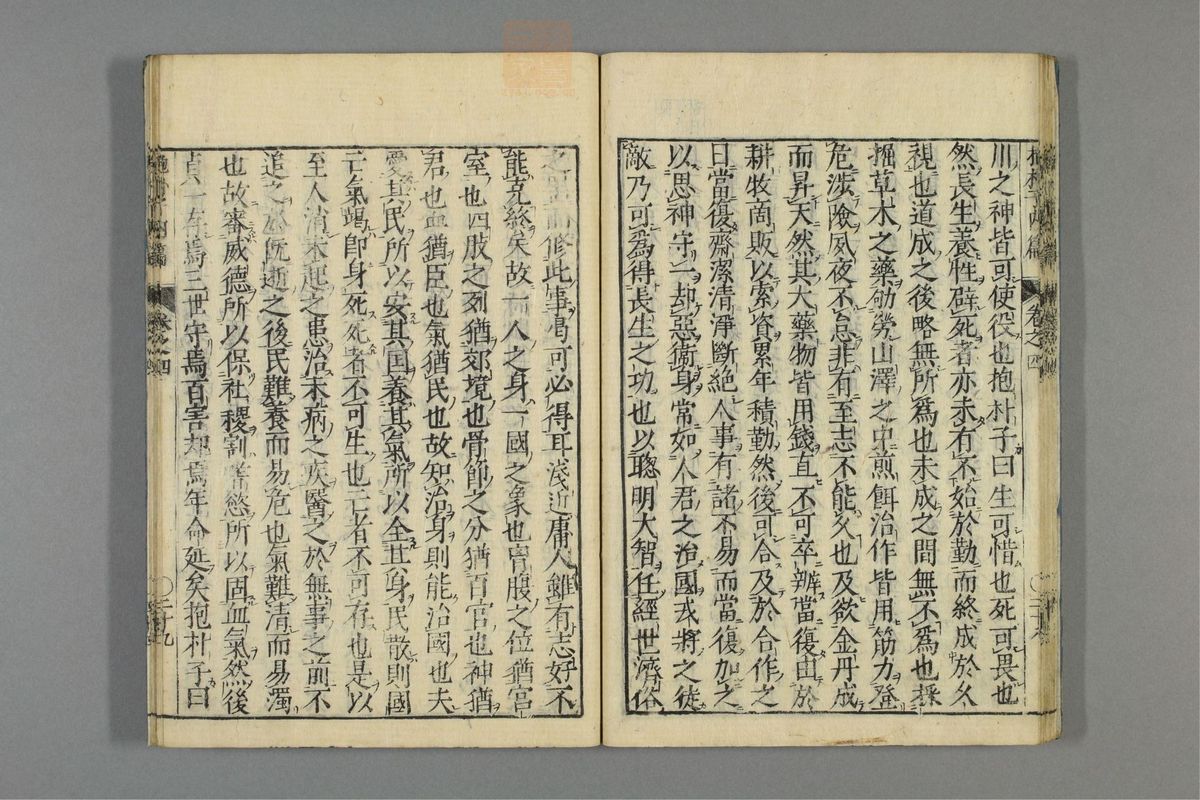 川之神皆可使役也抱朴子曰生可惜也死可畏也
然長生養性辟死者亦未有不始於勤而終成於久
視也道成之後略無所爲也未成之間無不爲也採
掘草木之藥劬勞山澤之中煎餌治作皆用筋力登
危涉險夙夜不怠非有至志不能久也及欲金丹成
而昇天然其大藥物皆用錢直不可卒辨當復由於
耕牧商販以索資累年積勤然後可合及於合作之
日當復齋潔清淨斷絶人事有諸不易而當復加之
以思神守一却惡衛身常如人君之治國戎將之徒
敵乃可爲得長生之功也以聦明大智任經世濟俗
之噐而修此事乃可必得耳淺近庸人雖有志好不
能克終矣故一人之身一國之象也胷腹之位猶宮
室也四肢之列猶郊境也骨節之分猶百官也神猶
君也血猶臣也氣猶民也故知治身則能治國也夫
愛其民所以安其国養其氣所以全其身民散則國
亡氣竭即身死死者不可生也亡者不可存也是以
至人消未起之患治未病之疾醫之於無事之前不
追之於既逝之後民難養而易危也氣難清而易濁
也故審威德所以保社稷割嗜慾所以固血氣然後
眞一存焉三世守焉百害却焉年命延矣抱朴子曰
卷之四
二十九